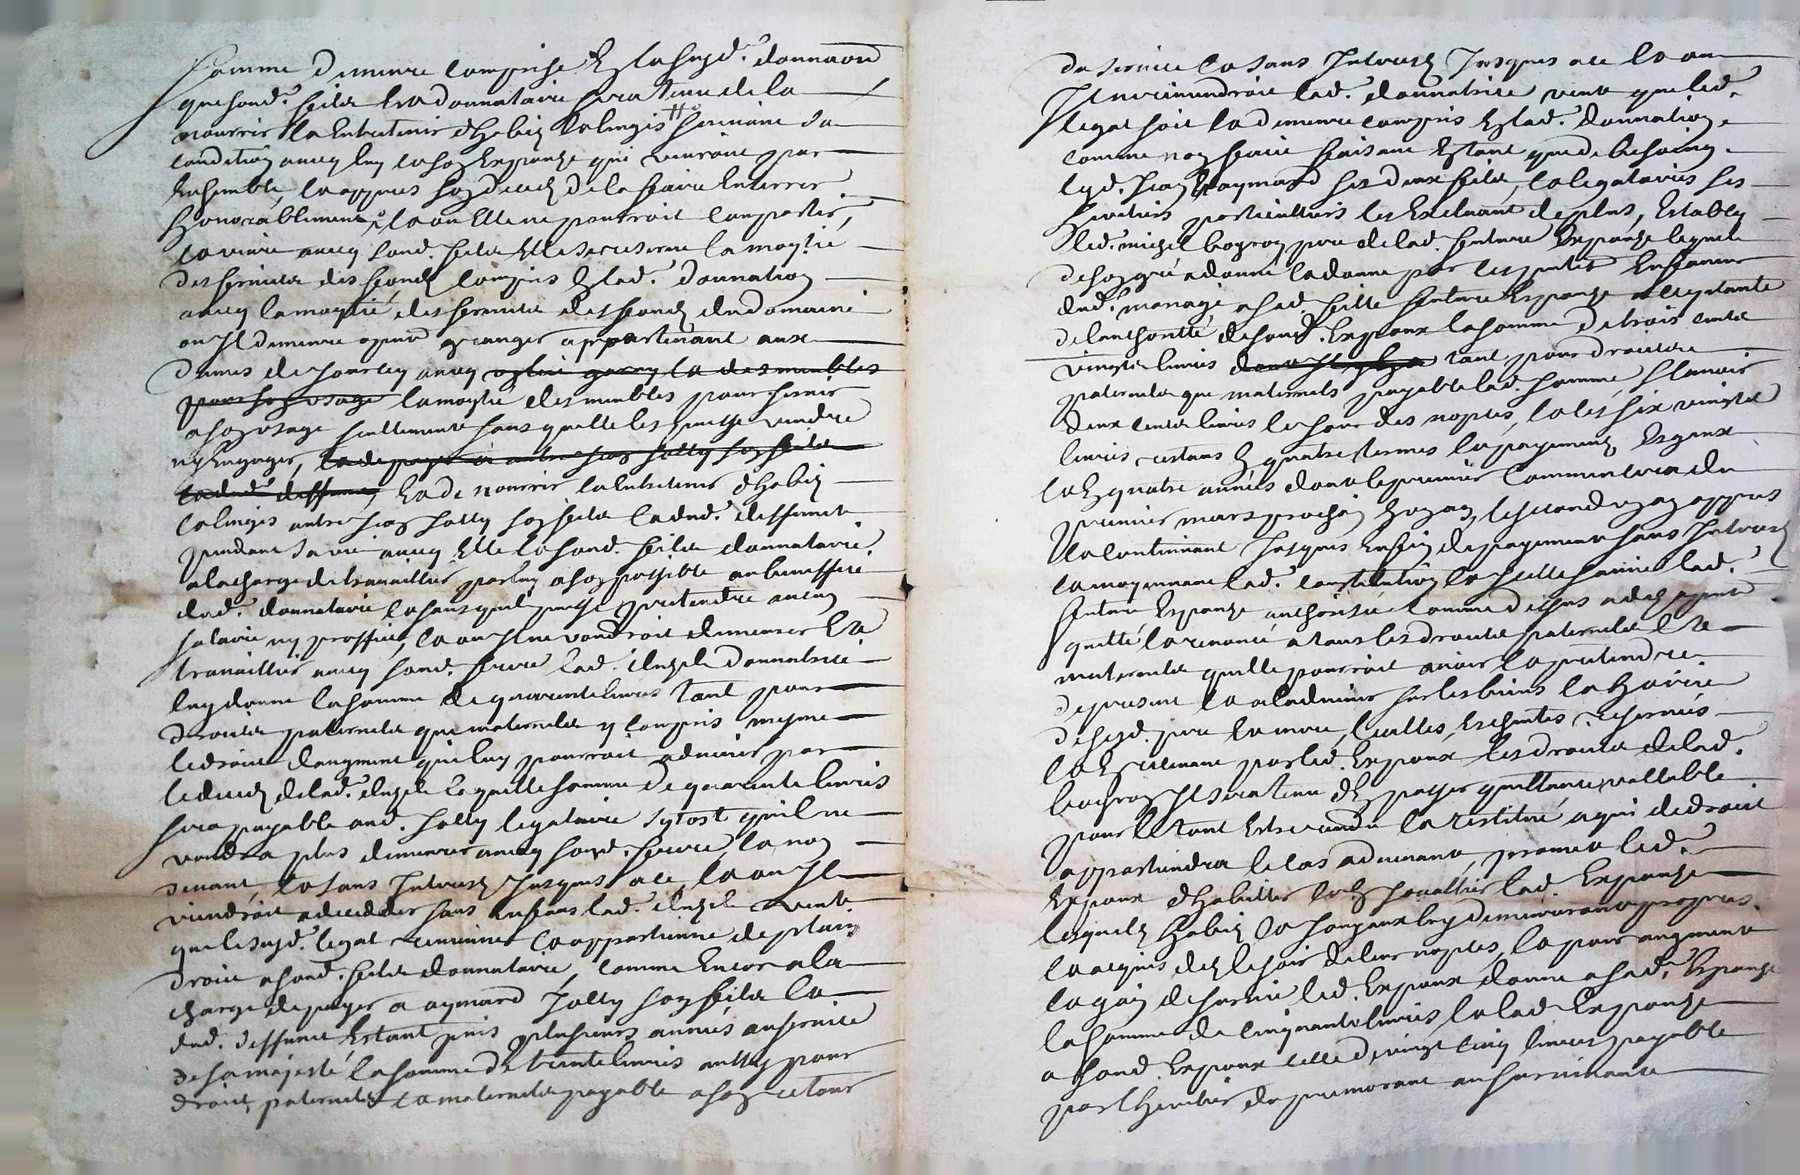 somme demeure comprise En la susd. donnaon
que sond. filz Et donnataire sera tenu de la
nourrir la Entretenir d'habitz Et linges suivant sa
condition avecq luy Et son Espouze qui vivront par
Ensemble, Et appres son deces de la faire Enterrer
honorablement, Et ou Elle ne pourroit compatir,
Et vivre avecq sond. filz Elle se reserve la moytié
des fruictz des fondz compris En lad. donnation
avecq la moytié des fruictz des fondz du domaine
ou Il demeure granger appartenant aux
dames de avecq la des meubles
pour son usage la moytié des meubles pour servir
a son usage seullement sans qu'elle les puisse vendre
ny Engager,
Et de nourrir Et Entretenir d'habitz
Et linges autre Jean Jolly son filz Et dud. deffunct
pendant sa vie avecq Elle Et sond. filz donnataire
a la charge de travailler par luy a son possible au beneffice
dud. donnataire Et sans qu'il puisse pretendre aucun
salaire ny proffict, Et ou Il ne voudroit demeurer Et
travailler avecq sond. frere lad. donnatrice
luy donne la somme de quarante livres tant pour
droictz paternelz que maternelz y compris mesme
le droict d'augment qui luy pourroit advenir par
le deces de lad. laquelle somme de quarante livres
sera payable aud. Jolly legataire sytost qu'il ne
voudra plus demeurer avecq sond. frere Et non
devant, Et sans Interest Jusques a ce, Et ou Il
viendroit a deceder sans enfans lad. veut
que le susd. legat revienne Et appartienne de plain
droict a sond. filz donnataire, comme Encor a la
charge de payer a aymard Jolly son filz Et
dud. deffunct Estant puis plusieurs années au service
de sa majesté la somme de trente livres aussy pour
droictz paternelz Et maternelz payable a son retour
du service Et sans Interest Jusques a ce Et ou
Il ne reviendroit lad. donnatrice veut que led.
legat soit Et demeure compris En lad. donnation
comme non faict faisant Estant que de besoing
lesd. Jean aymard ses deux filz, Et legataires ses
heritiers particulliers les Excluant de plus, Estably
led. michel pere de lad. future Espouze lequel
de son gré a donné Et donne par ces presentes En faveur
dud. mariage a sad. fille future Espouze acceptante
de l'authorité de sond. Espoux la somme de trois centz
vingtz livres tant pour droictz
paternelz que maternelz payable lad. somme scavoir
deux centz livres le jour des nopces, Et les six vingtz
livres restans En quatre termes Et payementz Esgaux
Et En quatre années dont le premier commencera du
premier mars prochain le second un an appres
Et continuant Jusques Enfin de payement sans Interest
Et moyennant lad. constitution Et icelle lad.
future Espouze authorisée comme dessus a
quitté Et renoncé a tous les droictz paternelz Et
maternelz qu'elle pourroit avoir Et pretendre
de present Et a l'advenir sur les biens Et hoirie
de sesd. pere Et mere, Escheutes reservés
Et En retirant par led. Espoux les droictz de lad.
Il sera tenu d'en passer quittance vallable
pour le tout Estre rendu Et restitué a qui de droict
appartiendra le cas advenant, promet led.
Espoux d'habiller Et lad. Espouze
lesquelz habitz Et Joyaux luy demeureront propres
Et acquis dez le jour de leur nopces, Et pour augment
Et gain de survie led. Espoux donne a sad. Espouze
la somme de cinquante livres, Et lad. Espouze
a sond. Espoux celle de vingt cinq livres payable
par l'heritier du premorant au survivant